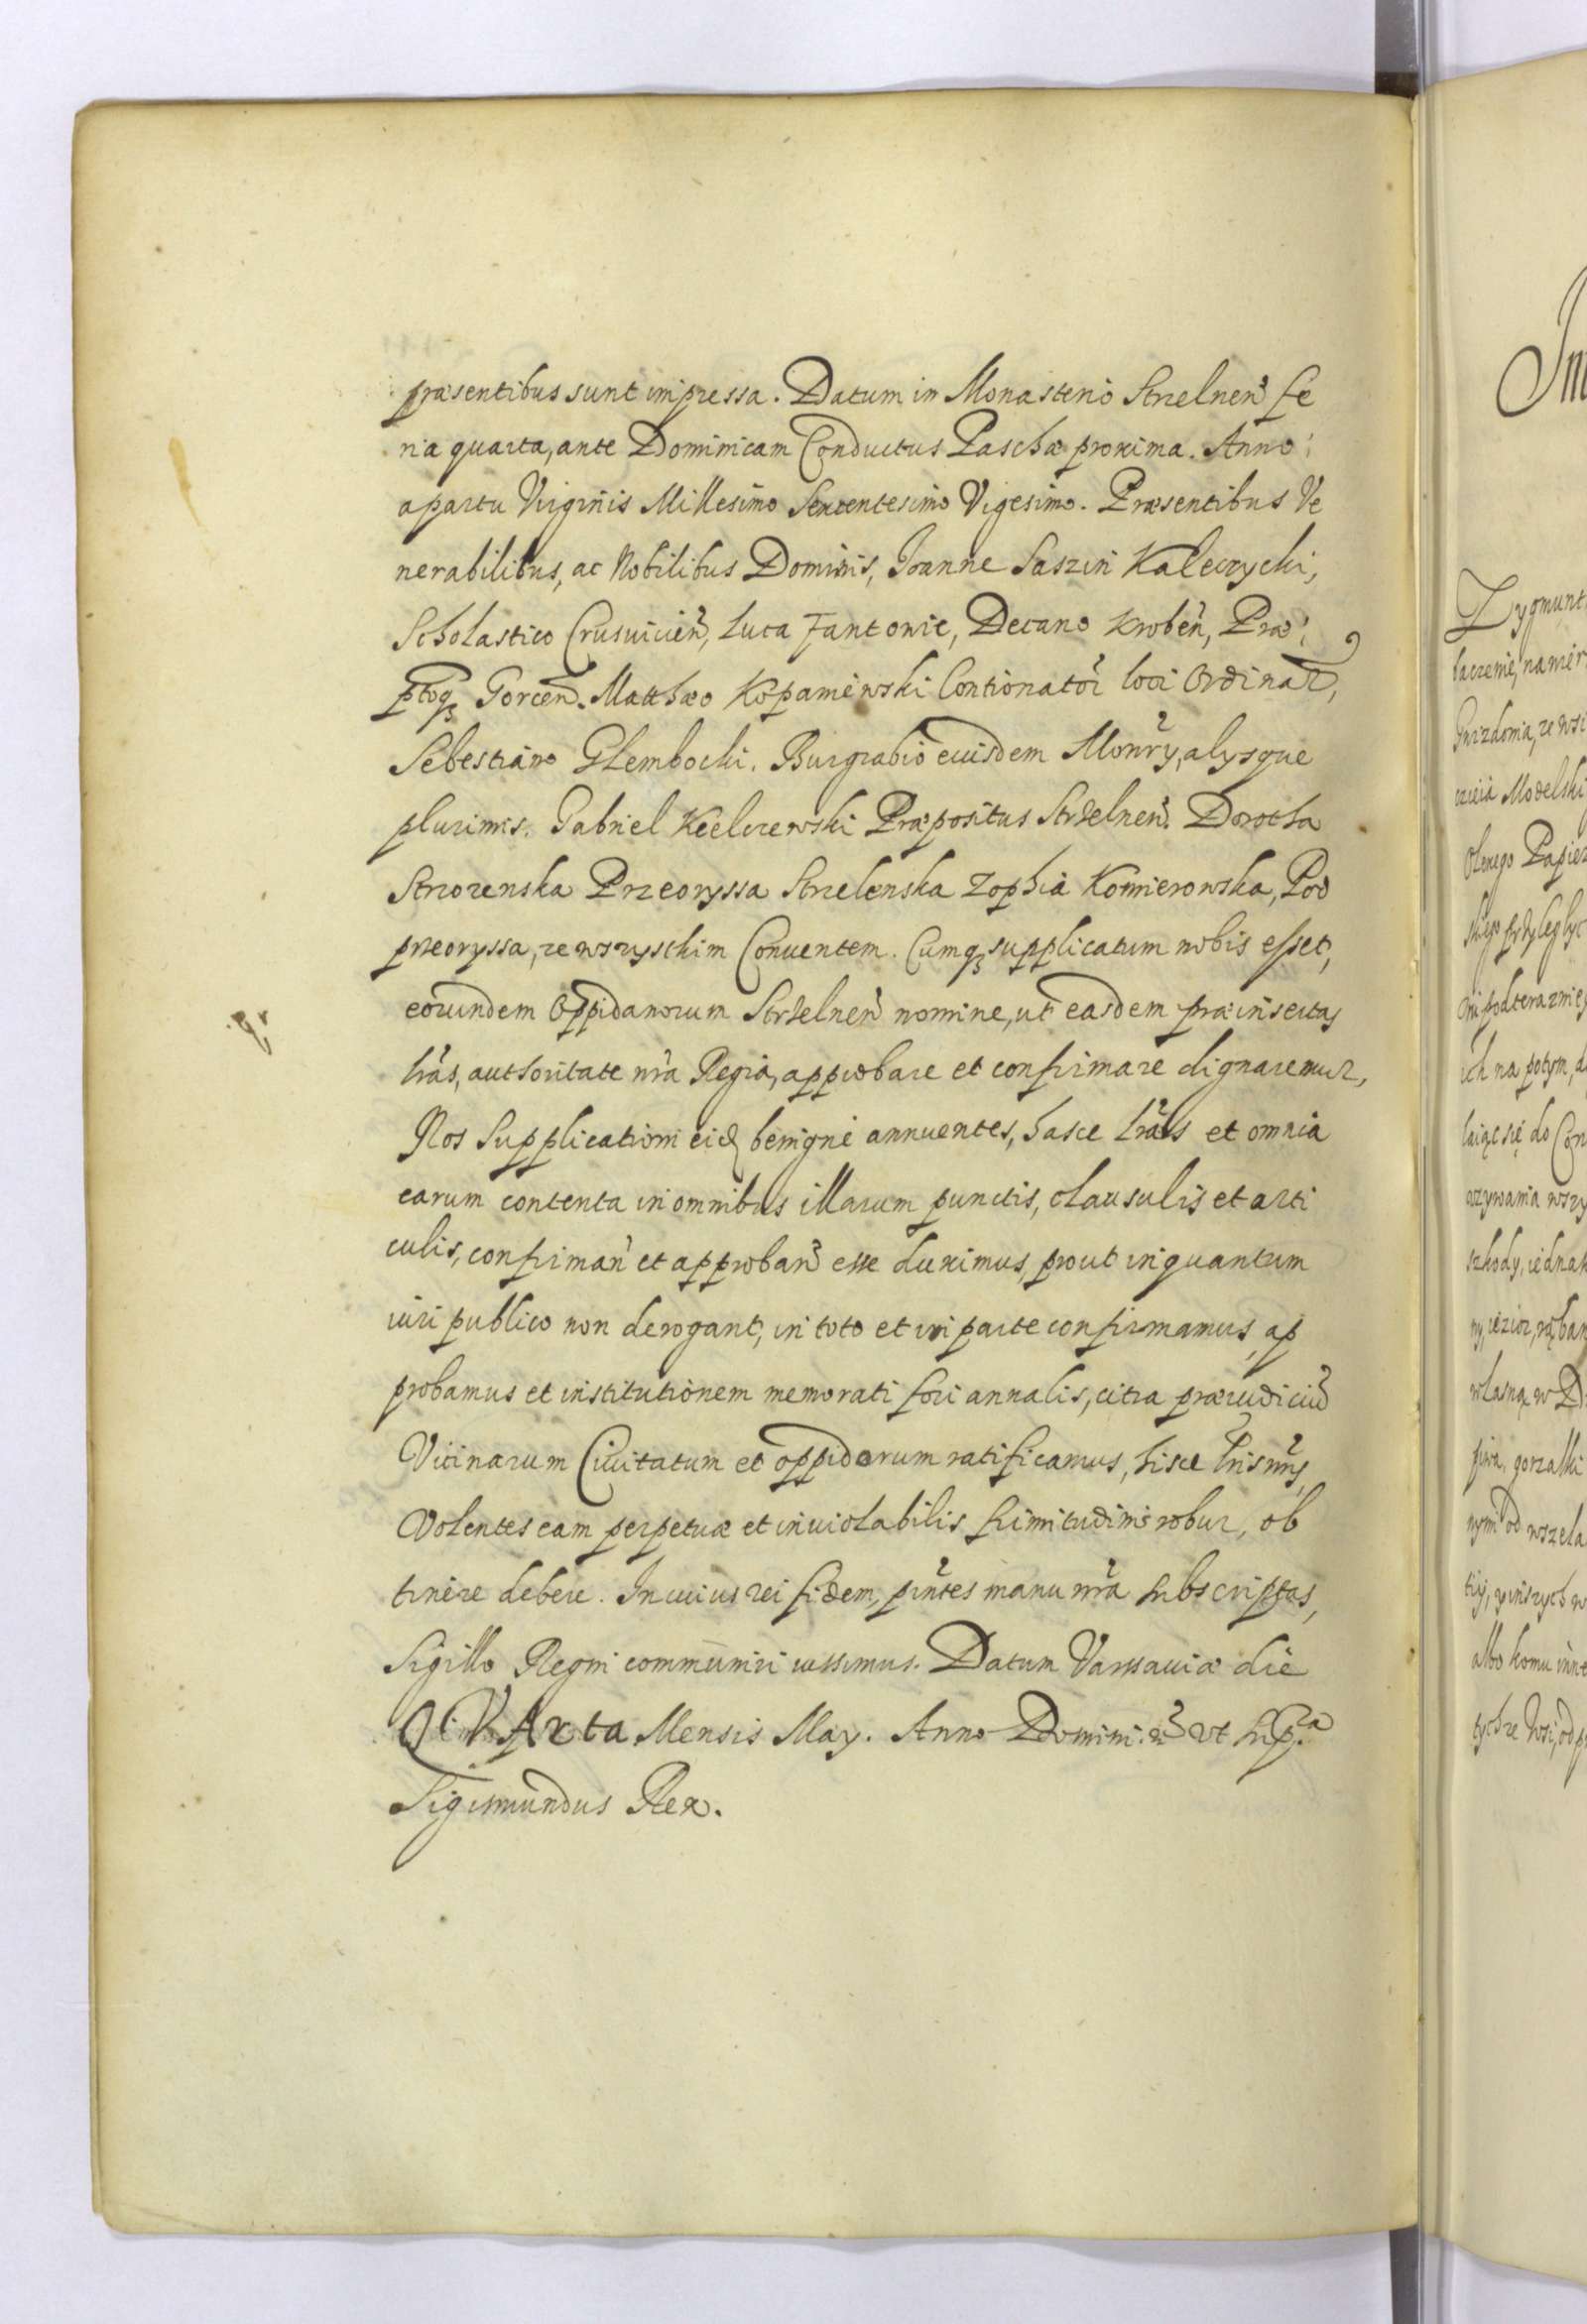 præsentibus sunt impressa. Datum in Monasterio Strzelneñ fe
ria quarta, ante Dominicam Conductus Paschæ proxima. Anno
a partu Virginis Millesimo Sexcentesimo Vigesimo. Præsentibus Ve
nerabilibus, ac Nobilibus Dominis, Joanne Saszin Kaleczycki,
Scholastico Crusuicieñ, Luca Fantonic, Decano Krobeñ, Præ
ptoqȝ Gorceñ. Matthæo Kopaminski Contionator̃ loci Ordinar̃,
Sebestiano Glembocki. Burgrabio eiusdem Monr̃y, alysque
plurimis. Gabriel Keelczewski Præpositus Strzelneñ. Dorotha
Strzozenska Przeoryssa Strzelenska Zophia Komierowska, Pod
przeoryssa, ze wszystkim Conuentem. Cumqȝ supplicatum nobis esset,
eorundem Oppidanorum Strzelneñ nomine, ut easdem præinsertas
lr̃as, authoritate nr̃a Regia, approbare et confirmare dignaremur,
Nos Supplicationi eid benigne annuentes, hasce lr̃as et omnia
earum contenta in omnibus illarum punctis, clausulis et arti
culis, confirmañ et approbañ esse duximus, prout inquantum
iuri publico non derogant, in toto et in parte confirmamus, ap
probamus et institutionem memorati fori annalis, citra præiudiciũ
Vicinarum Ciuitatum et oppidorum ratificamus, hisce lr̃is nr̃is,
Volentes eam perpetuæ et inuiolabilis firmitudinis robur, ob
tinere debere. In cuius rei fidem, pñtes manu nr̃a subscriptas,
Sigillo Regni communiri iussimus. Datum Varsauiæ die
QVArta Mensis May. Anno Domini ut sup.a
Sigismundus Rex.
Zygmunt
baczenie, namer
Gwizdonia, ze wsi
Modelski
Olenego Papier
ich na potym, a
do Con
wszy
szkody, iednak
wlasną w D
piwa, gorzalki
nym od wszela
albo komu inne
tychze Wsi, od p